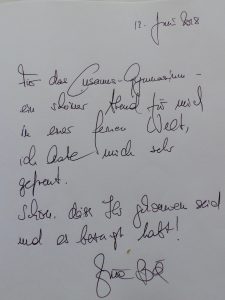 12. Juni 2018
Für das Cusanus-Gymnasium -
ein schöner Abend für mich
in einer fernen Welt,
ich habe mich sehr
gefreut.
Schön, dass Ihr gekommen seid
und es besorgt habt!